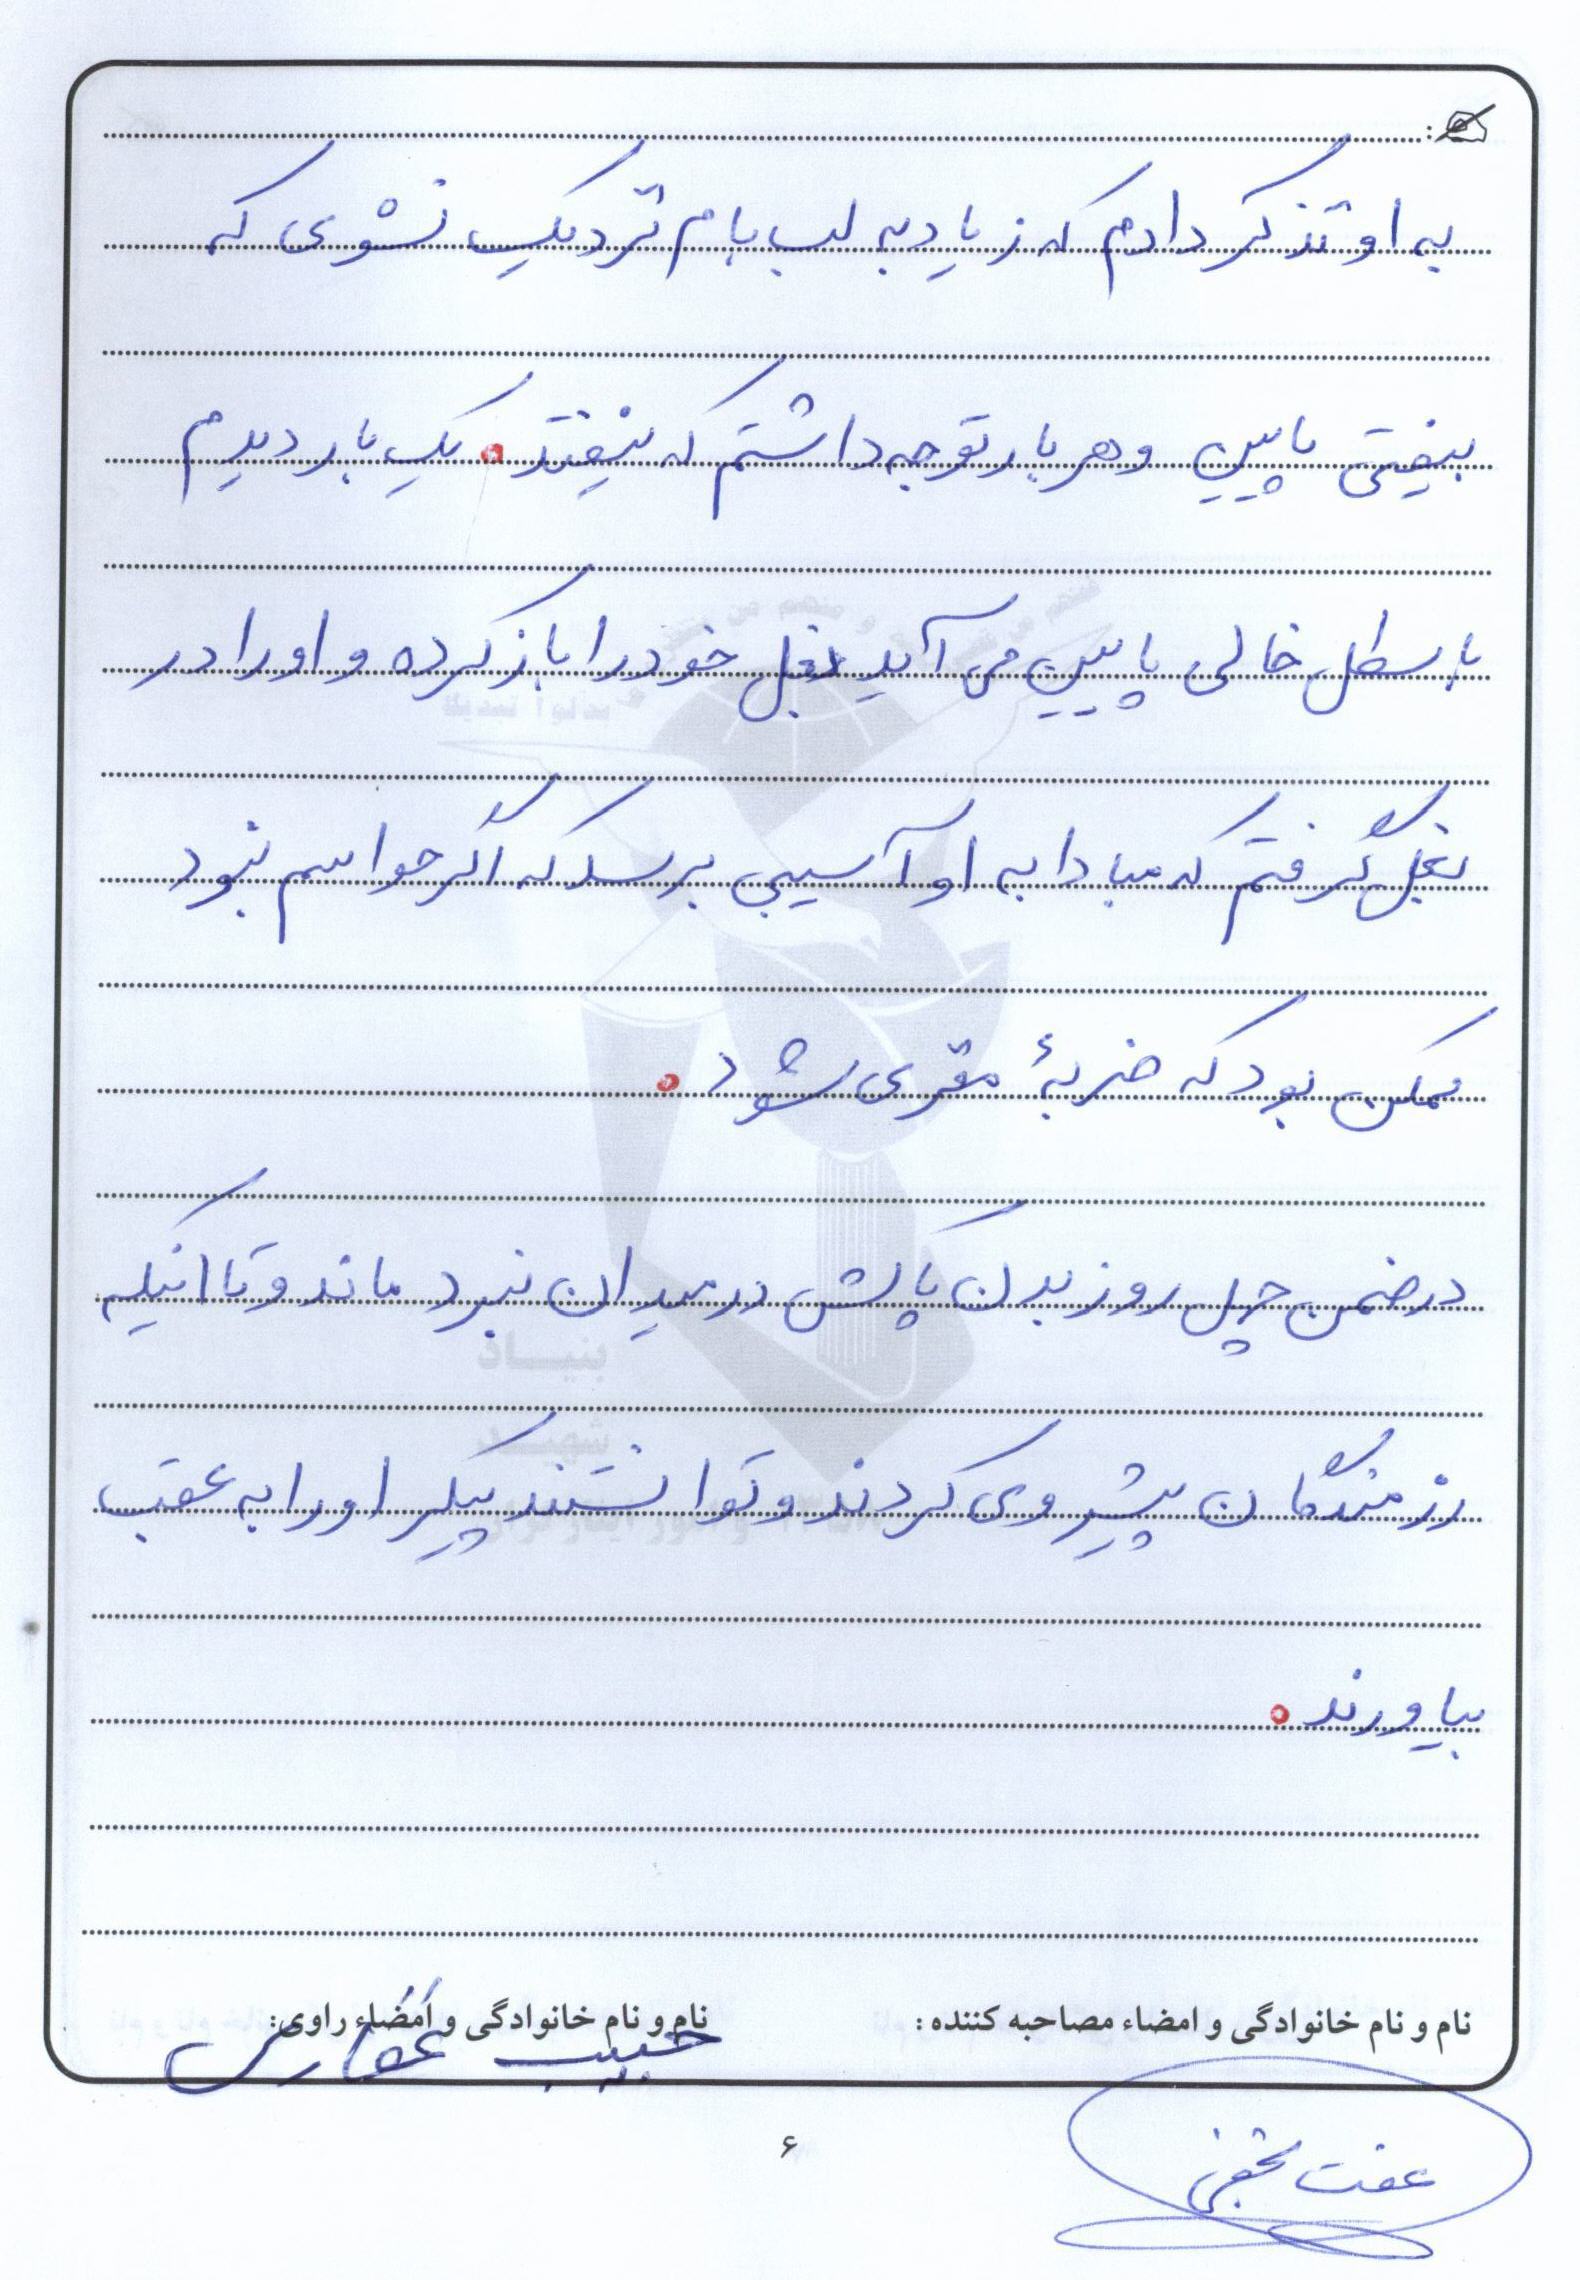 به او تذکر دادم که زیاد به لب بام نزدیک نشوی که
بیفتی پایین و هر بار توجه داشتم که نیفتد. یک بار دیدم
با سطل خالی پایین می آید بغل خود را باز کرده و او را در
بغل گرفتم که مبادا به او آسیبی برسد که اگر حواسم نبود
ممکن بود که ضربهٔ مغزی شود.
در ضمن چهل روز بدن پاکش در میدان نبرد ماند و تا اینکه
رزمندگان پیشروی کردند و توانستند پیکر او را به عقب
بیاورند.
نام و نام خانوادگی و امضاء مصاحبه کننده :
نام و نام خانوادگی و امضاء راوی:
حبیب
عفت
۶
بنیاد
شهید